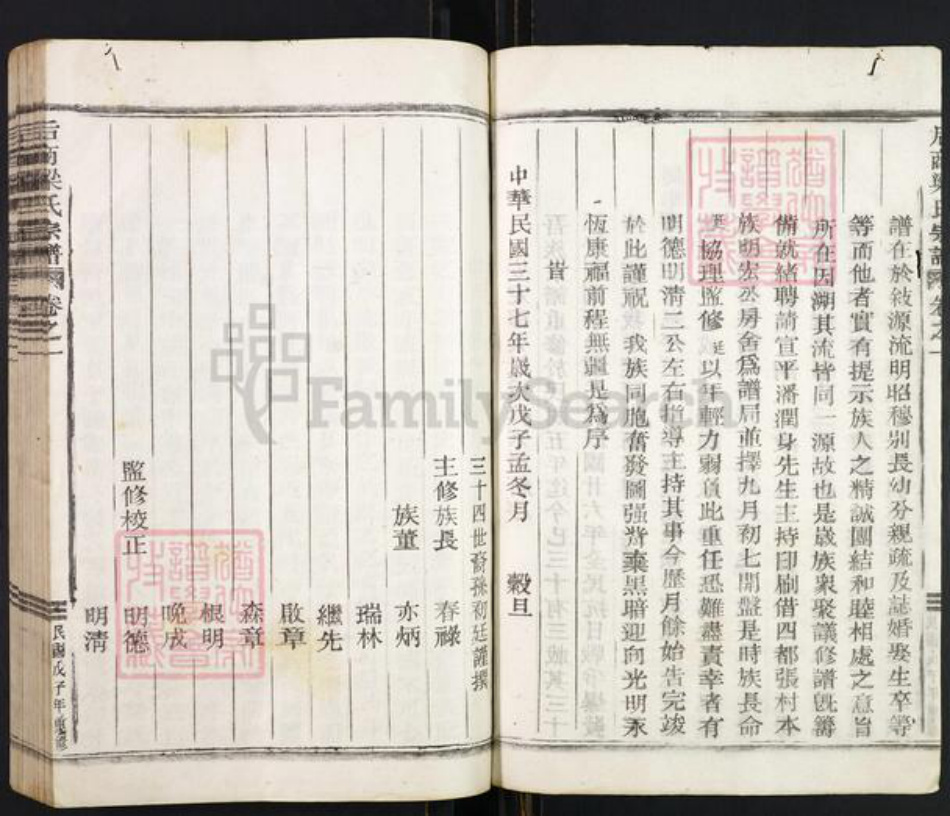 梁氏宗譜
譜在於敍源流明昭穆别長幼分親疏及誌婚娶生卒等
等而他者實有提示族人之精誠團結和睦相處之意旨
所在因溯其流皆同一源故也是歲族衆聚議修譜旣籌
備就緒聘請宣平潘潤身先生主持印刷借四都張村本
族明宏公房舍爲譜局並擇九月初七開盤是時族長命
協理監修 廷以年輕力弱負此重任恐難盡責幸者有
明德明清二公左右指導主持其事今歷月餘始告完竣
於此謹祝我族同胞奮發圖强背棄黑暗迎向光明永
恆康福前程無疆是為序
中華民國三十七年歲次戊子孟冬月 穀旦
三十四世裔孫初廷謹撰
主修族長 春祿
族董 亦炳
瑞林
繼先
啟章
森章
根明
晚成
監修校正 明德
明清
后商梁氏宗譜 卷之一
民國戊子年重修
FamilySearch